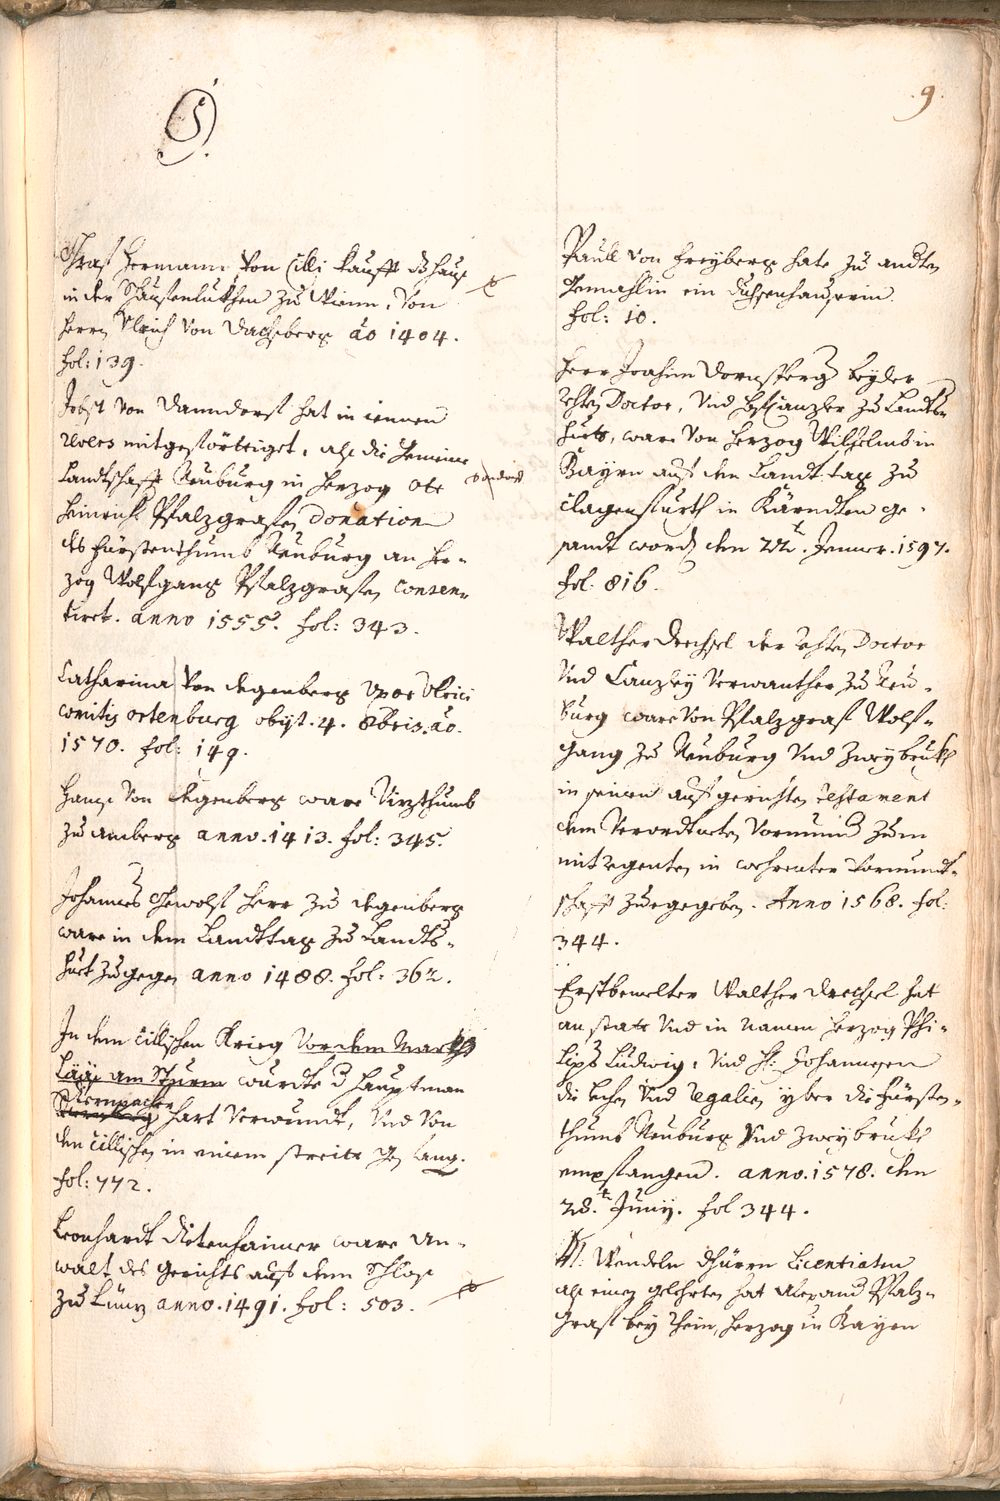 9.
Graf Hermann von Cilli kaufft dz hauß
in der zu Wienn, von
herrn Ulrich von Dachsberg ao 1404.
fol: 139.
Jobst von Danndorf hat in jennen
Revers mitgeförtiget, alß die Gemeine
Landtschafft Neuburg in herzog Ott
Heinrich Pfalzgrafen Donation
des Fürstenthumb Neuburg an Her-
zog Wolfgang Pfalzgrafen consen-
tirt. anno 1555. fol: 343.
Catharina von Degenberg uxor Ulrici
comitis Ortenburg obijt. 4. 8bris. ao.
1570. fol: 149.
Hannß von Degenberg ware Vizthumb
zu Amberg anno. 1413. fol: 345.
Johannes Gewolf Herr zu Degenberg
ware in dem Landttag zu Landts-
huet zugegen anno 1488. fol: 362.
In dem Cillischen Krieg vor dem Markht
Lääß am Sturm wurdte d hauptman
hart verwundt, und von
den Cillischen in einem streitt gefang.
fol: 772.
Leonhardt Dietenhaimer ware An-
walt des Gerichts auf dem Schloß
zu Lünz anno. 1491. fol: 503.
Paull von Freyberg hate zu andten
Gemahlin ein
fol: 10.
Herr Joachim Dornsperg beyder
Rehten Doctor, und Canzler zu Landts-
huet, ware von Herzog Wilhelmb in
Bayrn auf den Landt tag zu
Clagenfurth in Kärndten ge-
sandt word den Jenner. 1597.
fol: 816.
Walther Drechsel der Rehten Doctor
und Canzley Verwanther zu Neu-
burg ware von Pfalzgraf Wolf-
gang zu Neuburg und Zweybrukh
in seinem aufgerichten Testament
dem Verordtneten Vormund zum
mitregenten in wehrenter vormundt-
schafft zuegegeben. Anno 1568. fol:
344.
Erstbemelter Walther Drechsel hat
an statt und in namen Herzog Phi-
lips Ludwig, und H: Johannsen
die Lehen und Regalien yber die Fürsten-
thumb Neuburg und Zweybrukh
empfangen. anno. 1578. den
28.t Juny. fol 344.
M. Wendeln Dhürrn Licentiaten
alß einen gelehrten hat Alexand Pfalz-
Graf bey Rhein, Herzog in Bayrn